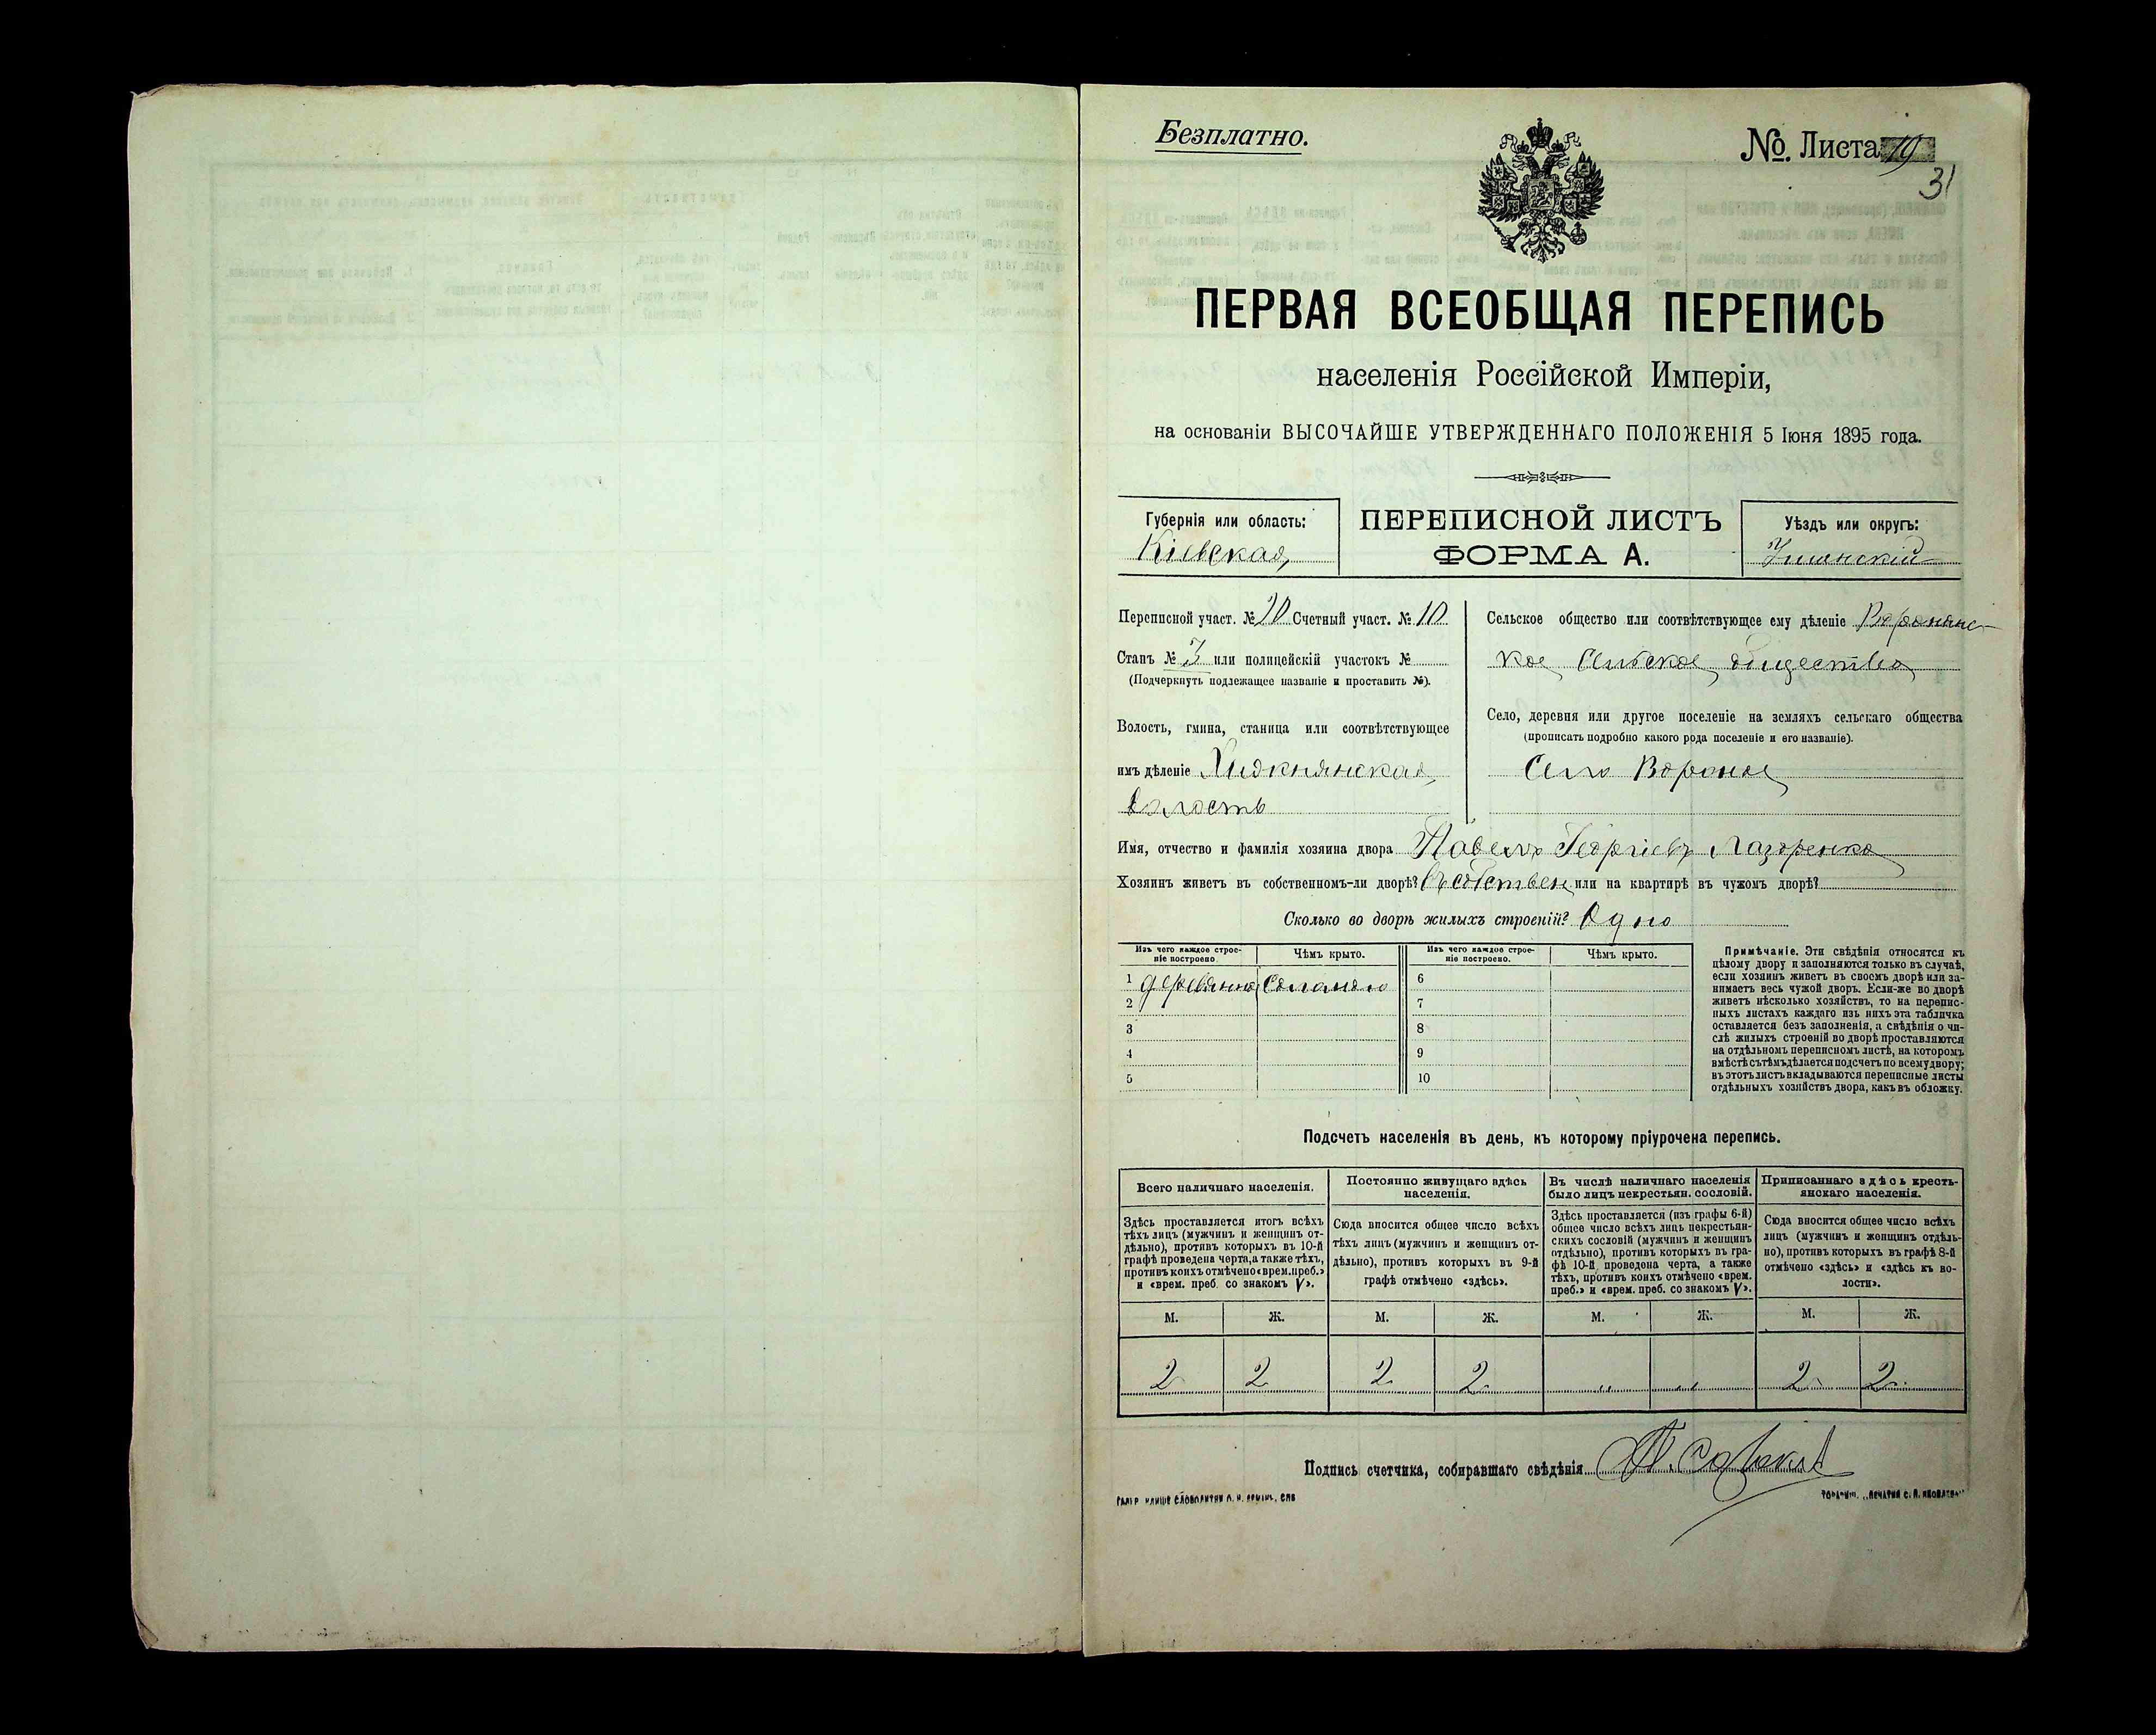 Безплатно.
№. Листа 19
31
ПЕРВАЯ ВСЕОБЩАЯ ПЕРЕПИСЬ
населенія Россійской Имперіи,
на основаніи ВЫСОЧАЙШЕ УТВЕРЖДЕННАГО ПОЛОЖЕНІЯ 5 Іюня 1895 года.
Губернія или область:
Кіевская
ПЕРЕПИСНОЙ ЛИСТЪ
ФОРМА А.
Уѣздъ или округъ:
Уманскій
Переписной участ. № 20 Счетный участ. № 10
Станъ № 3 или полицейскій участокъ №
(Подчеркнуть подлежащее названіе и проставить №).
Волость, гмина, станица или соотвѣтствующее
имъ дѣленіе
волость
Сельское общество или соотвѣтствующее ему дѣленіе Воронянс-
кое сельское общество
Село, деревня или другое поселеніе на земляхъ сельскаго общества
(прописать подробно какого рода поселеніе и его названіе).
Село Вороное
Имя, отчество и фамилія хозяина двора Павелъ Георгіевъ Лазоренко
Хозяинъ живетъ въ собственномъ-ли дворѣ? Въ собствен или на квартирѣ въ чужомъ дворѣ?
Сколько во дворѣ жилыхъ строеній? Одно
Изъ чего каждое строе-
ніе построено.
Чѣмъ крыто.
Изъ чего каждое строе-
ніе построено.
Чѣмъ крыто.
1 деревянно соломою 6
2 7
3 8
4 9
5 10
Примѣчаніе. Эти свѣдѣнія относятся къ
цѣлому двору и заполняются только въ случаѣ,
если хозяинъ живетъ въ своемъ дворѣ или за-
нимаетъ весь чужой дворъ. Если-же во дворѣ
живетъ нѣсколько хозяйствъ, то на перепис-
ныхъ листахъ каждаго изъ нихъ эта табличка
оставляется безъ заполненія, а свѣдѣнія о чи-
слѣ жилыхъ строеній во дворѣ проставляются
на отдѣльномъ переписномъ листѣ, на которомъ
вмѣстѣ съ тѣмъ дѣлается подсчетъ по всему двору;
въ этотъ листъ вкладываются переписные листы
отдѣльныхъ хозяйствъ двора, какъ въ обложку.
Подсчетъ населенія въ день, къ которому пріурочена перепись.
Всего наличнаго населенія.
Здѣсь проставляется итогъ всѣхъ
тѣхъ лицъ (мужчинъ и женщинъ от-
дѣльно), противъ которыхъ въ 10-й
графѣ проведена черта, а также тѣхъ,
противъ коихъ отмѣчено «врем. преб.»
и «врем. преб. со знакомъ V».
Постоянно живущаго здѣсь
населенія.
Сюда вносится общее число всѣхъ
тѣхъ лицъ (мужчинъ и женщинъ от-
дѣльно), противъ которыхъ въ 9-й
графѣ отмѣчено «здѣсь».
Въ числѣ наличнаго населенія
было лицъ некрестьян. сословій.
Здѣсь проставляется (изъ графы 6-й)
общее число всѣхъ лицъ некрестьян-
скихъ сословій (мужчинъ и женщинъ
отдѣльно), противъ которыхъ въ гра-
фѣ 10-й, проведена черта, а также
тѣхъ, противъ коихъ отмѣчено «врем.
преб.» и «врем. преб. со знакомъ V».
Приписаннаго здѣсь кресть-
янскаго населенія.
Сюда вносится общее число всѣхъ
лицъ (мужчинъ и женщинъ отдѣль-
но), противъ которыхъ въ графѣ 8-й
отмѣчено «здѣсь» и «здѣсь къ во-
лости».
М. Ж. М. Ж. М. Ж. М. Ж.
2 2 2 2 " " 2 2
Подпись счетчика, собиравшаго свѣдѣнія